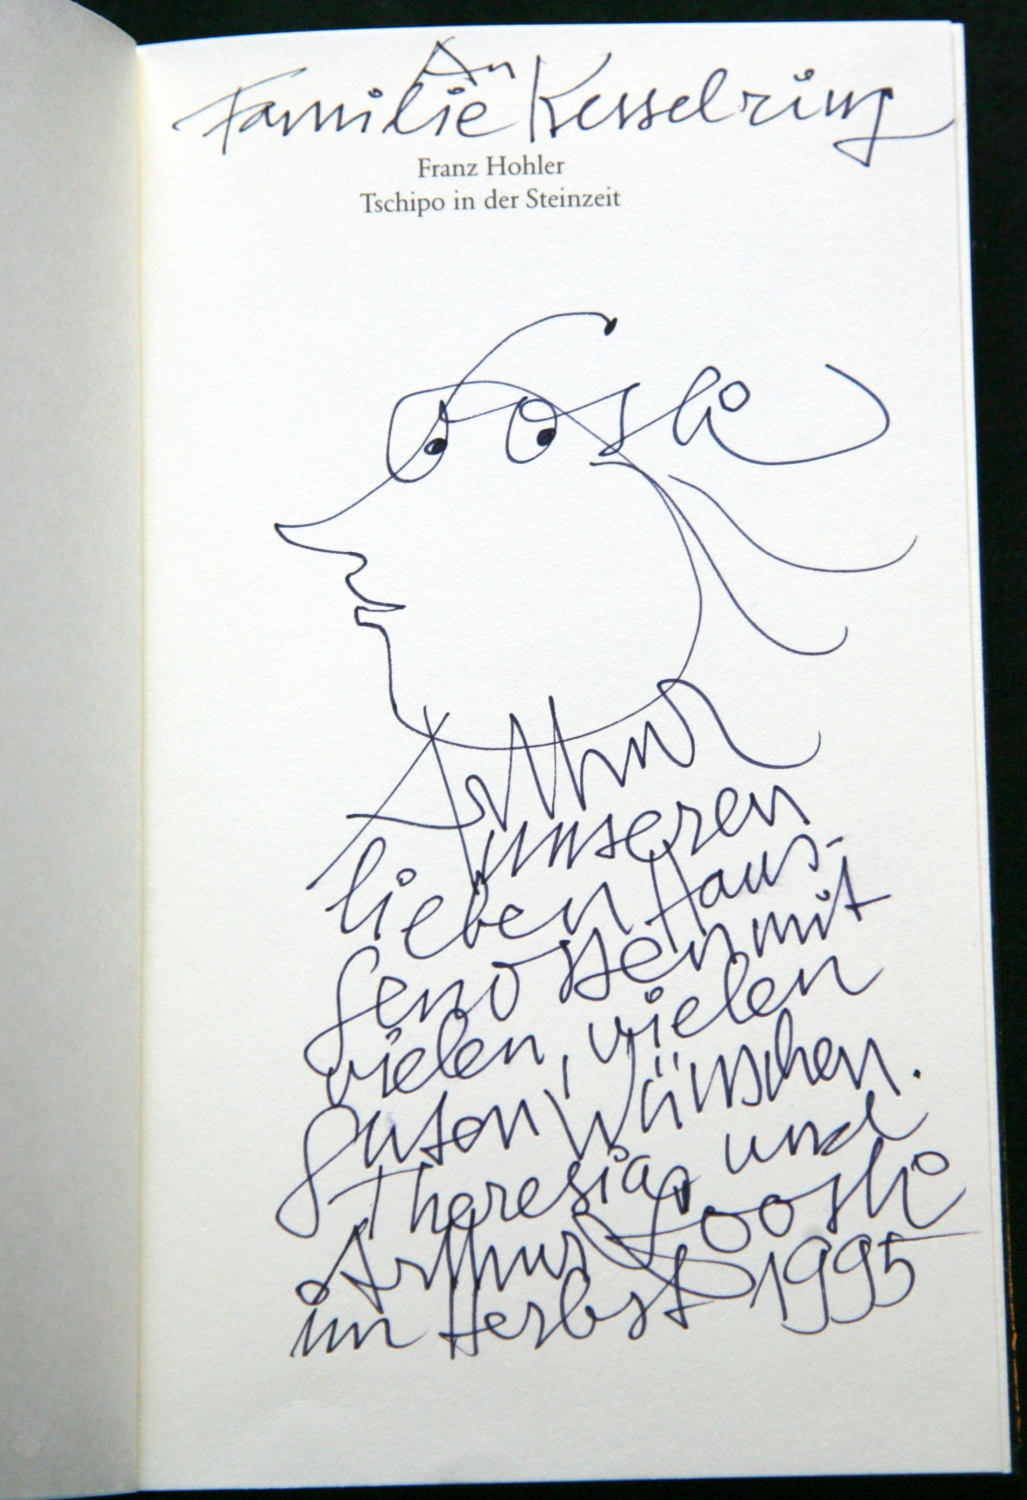 An
Familie Kesselring
Franz Hohler
Tschipo in der Steinzeit
Loosli
Arthur
unseren
lieben Haus-
genossen mit
vielen, vielen
guten Wünschen.
Theresia und
Arthur Loosli
im Herbst 1995